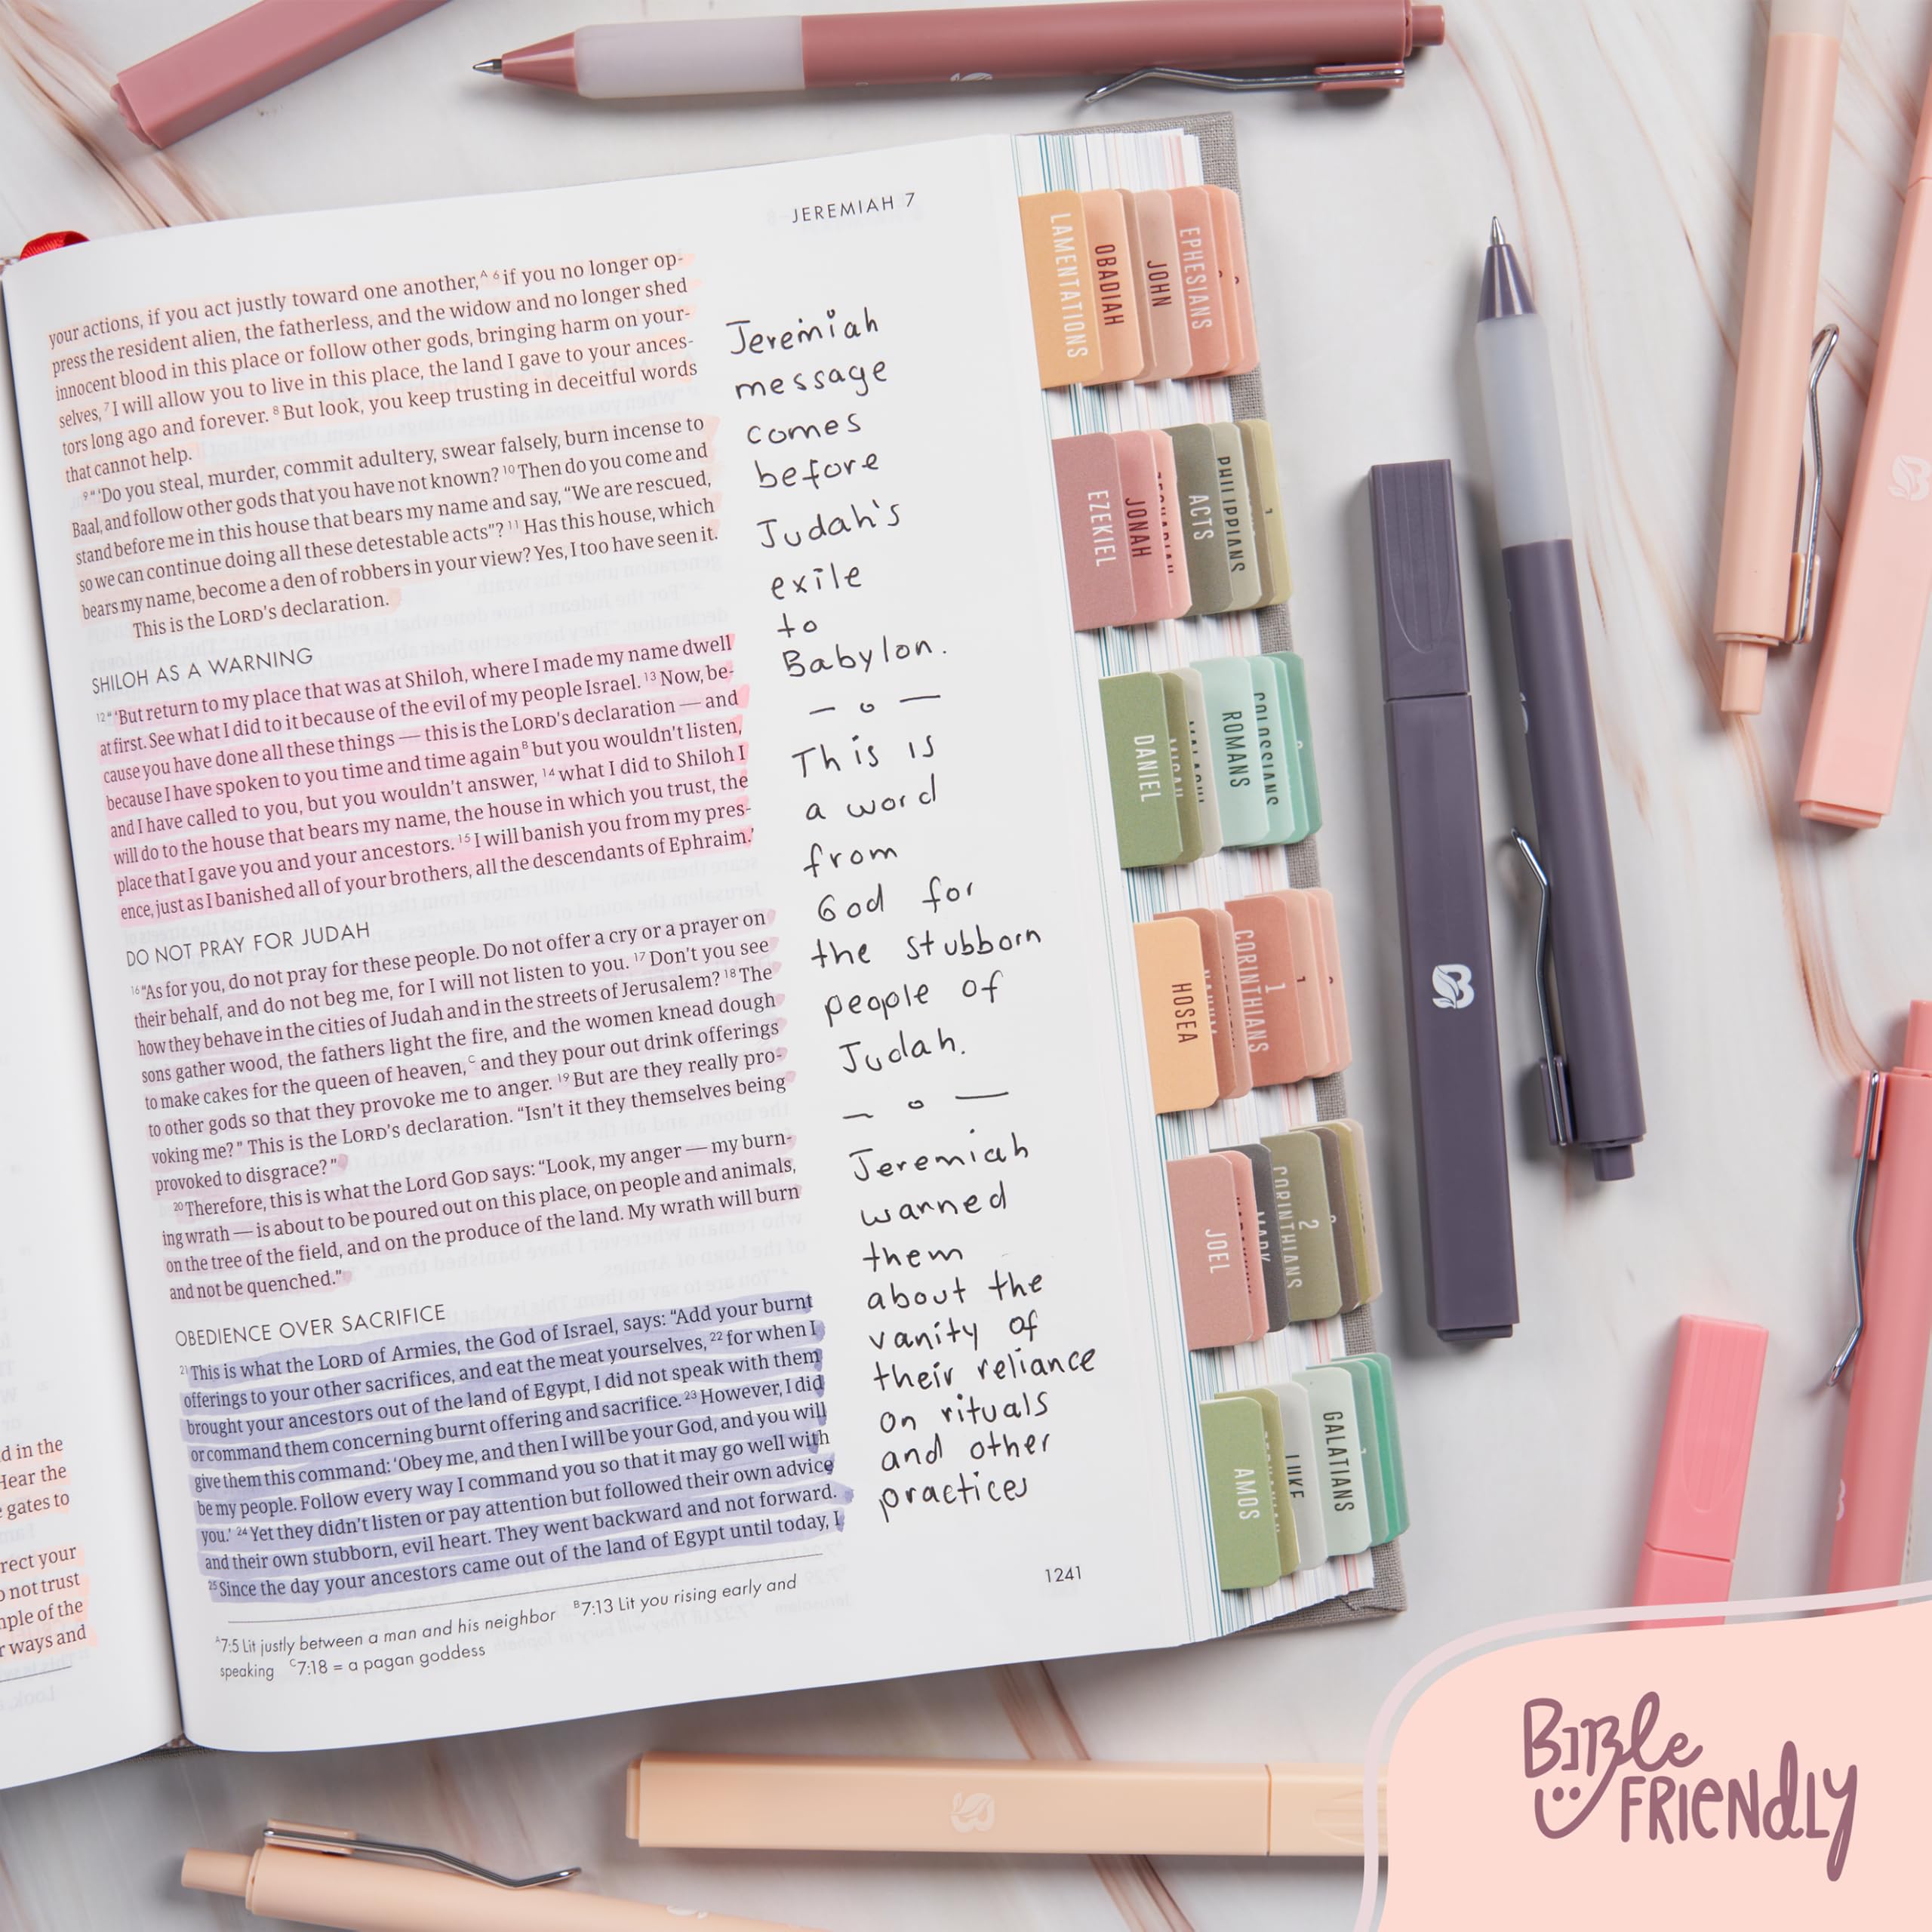 JEREMIAH 7
your actions, if you act justly toward one another,ᴬ ⁶ if you no longer op-
press the resident alien, the fatherless, and the widow and no longer shed
innocent blood in this place or follow other gods, bringing harm on your-
selves, ⁷ I will allow you to live in this place, the land I gave to your ances-
tors long ago and forever. ⁸ But look, you keep trusting in deceitful words
that cannot help.
⁹ “‘Do you steal, murder, commit adultery, swear falsely, burn incense to
Baal, and follow other gods that you have not known? ¹⁰ Then do you come and
stand before me in this house that bears my name and say, “We are rescued,
so we can continue doing all these detestable acts”? ¹¹ Has this house, which
bears my name, become a den of robbers in your view? Yes, I too have seen it.
This is the LORD’s declaration.
SHILOH AS A WARNING
¹² “‘But return to my place that was at Shiloh, where I made my name dwell
at first. See what I did to it because of the evil of my people Israel. ¹³ Now, be-
cause you have done all these things — this is the LORD’s declaration — and
because I have spoken to you time and time againᴮ but you wouldn’t listen,
and I have called to you, but you wouldn’t answer, ¹⁴ what I did to Shiloh I
will do to the house that bears my name, the house in which you trust, the
place that I gave you and your ancestors. ¹⁵ I will banish you from my pres-
ence, just as I banished all of your brothers, all the descendants of Ephraim.’
DO NOT PRAY FOR JUDAH
¹⁶ “As for you, do not pray for these people. Do not offer a cry or a prayer on
their behalf, and do not beg me, for I will not listen to you. ¹⁷ Don’t you see
how they behave in the cities of Judah and in the streets of Jerusalem? ¹⁸ The
sons gather wood, the fathers light the fire, and the women knead dough
to make cakes for the queen of heaven,ᶜ and they pour out drink offerings
to other gods so that they provoke me to anger. ¹⁹ But are they really pro-
voking me?” This is the LORD’s declaration. “Isn’t it they themselves being
provoked to disgrace?”
²⁰ Therefore, this is what the Lord GOD says: “Look, my anger — my burn-
ing wrath — is about to be poured out on this place, on people and animals,
on the tree of the field, and on the produce of the land. My wrath will burn
and not be quenched.”
OBEDIENCE OVER SACRIFICE
²¹ This is what the LORD of Armies, the God of Israel, says: “Add your burnt
offerings to your other sacrifices, and eat the meat yourselves, ²² for when I
brought your ancestors out of the land of Egypt, I did not speak with them
or command them concerning burnt offering and sacrifice. ²³ However, I did
give them this command: ‘Obey me, and then I will be your God, and you will
be my people. Follow every way I command you so that it may go well with
you.’ ²⁴ Yet they didn’t listen or pay attention but followed their own advice
and their own stubborn, evil heart. They went backward and not forward.
²⁵ Since the day your ancestors came out of the land of Egypt until today, I
ᴬ7:5 Lit justly between a man and his neighbor ᴮ7:13 Lit you rising early and
speaking ᶜ7:18 = a pagan goddess
1241
Jeremiah
message
comes
before
Judah's
exile
to
Babylon.
This is
a word
from
God for
the stubborn
people of
Judah.
Jeremiah
warned
them
about the
vanity of
their reliance
on rituals
and other
practices
d in the
Hear the
gates to
rect your
o not trust
mple of the
r ways and
LAMENTATIONS
OBADIAH
JOHN
EPHESIANS
EZEKIEL
JONAH
ACTS
PHILIPPIANS
DANIEL
ROMANS
COLOSSIANS
HOSEA
1 CORINTHIANS
JOEL
MARK
2 CORINTHIANS
AMOS
LUKE
GALATIANS
BIBle
FRIeNdLY